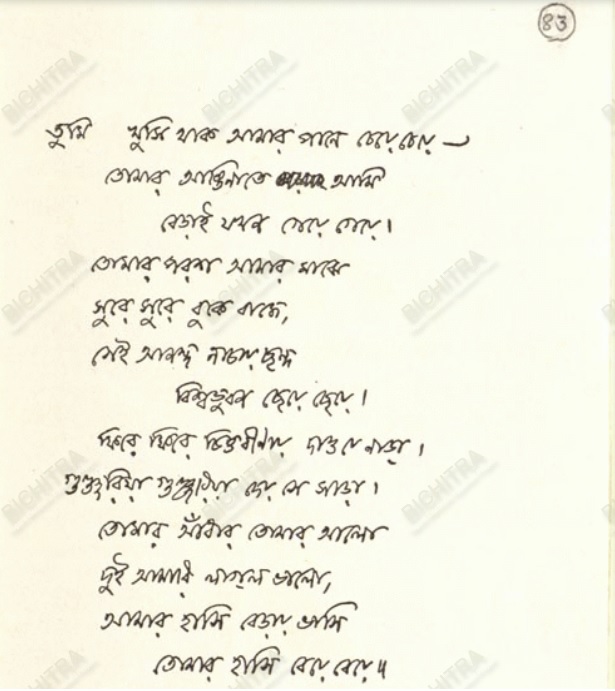 ৪৩
তুমি খুসি থাক আমার পানে চেয়ে চেয়ে —
তোমার আঙিনাতে আমি
বেড়াই যখন গেয়ে গেয়ে।
তোমার পরশ আমার মাঝে
সুরে সুরে বুকে বাজে,
সেই আনন্দ নাচায় ছন্দ
বিশ্বভুবন ছেয়ে ছেয়ে।
ফিরে ফিরে চিত্তবীণায় দাও যে নাড়া।
গুঞ্জরিয়া গুঞ্জরিয়া দেয় সে সাড়া।
তোমার আঁধার তোমার আলো
দুই আমারে লাগল ভালো,
আমার হাসি বেড়ায় ভাসি
তোমার হাসি বেয়ে বেয়ে॥